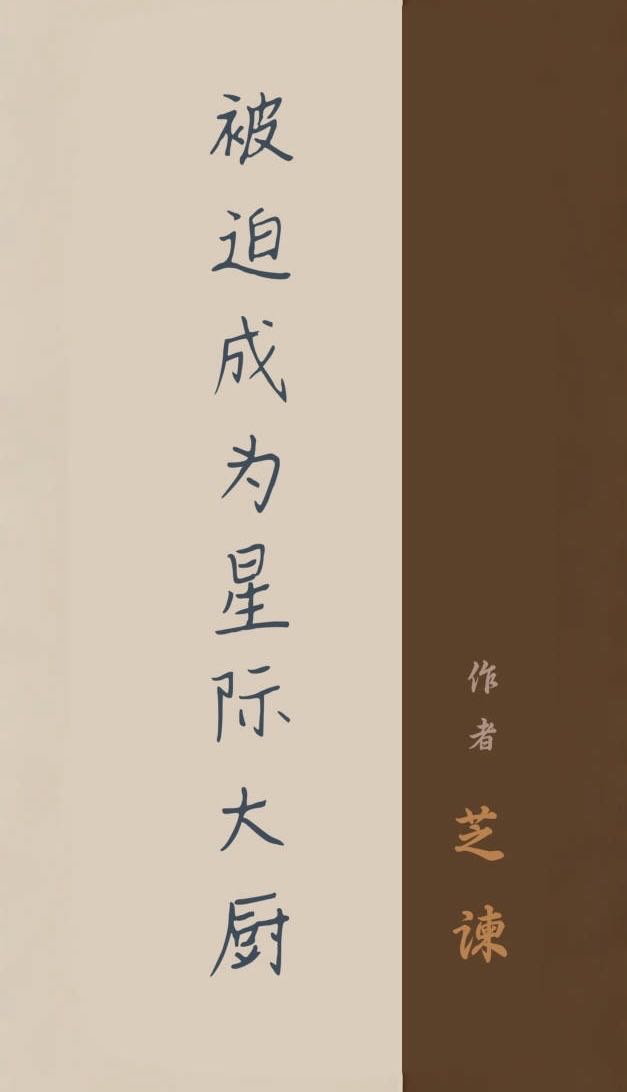 被迫成为星际大厨
作者
芝谏